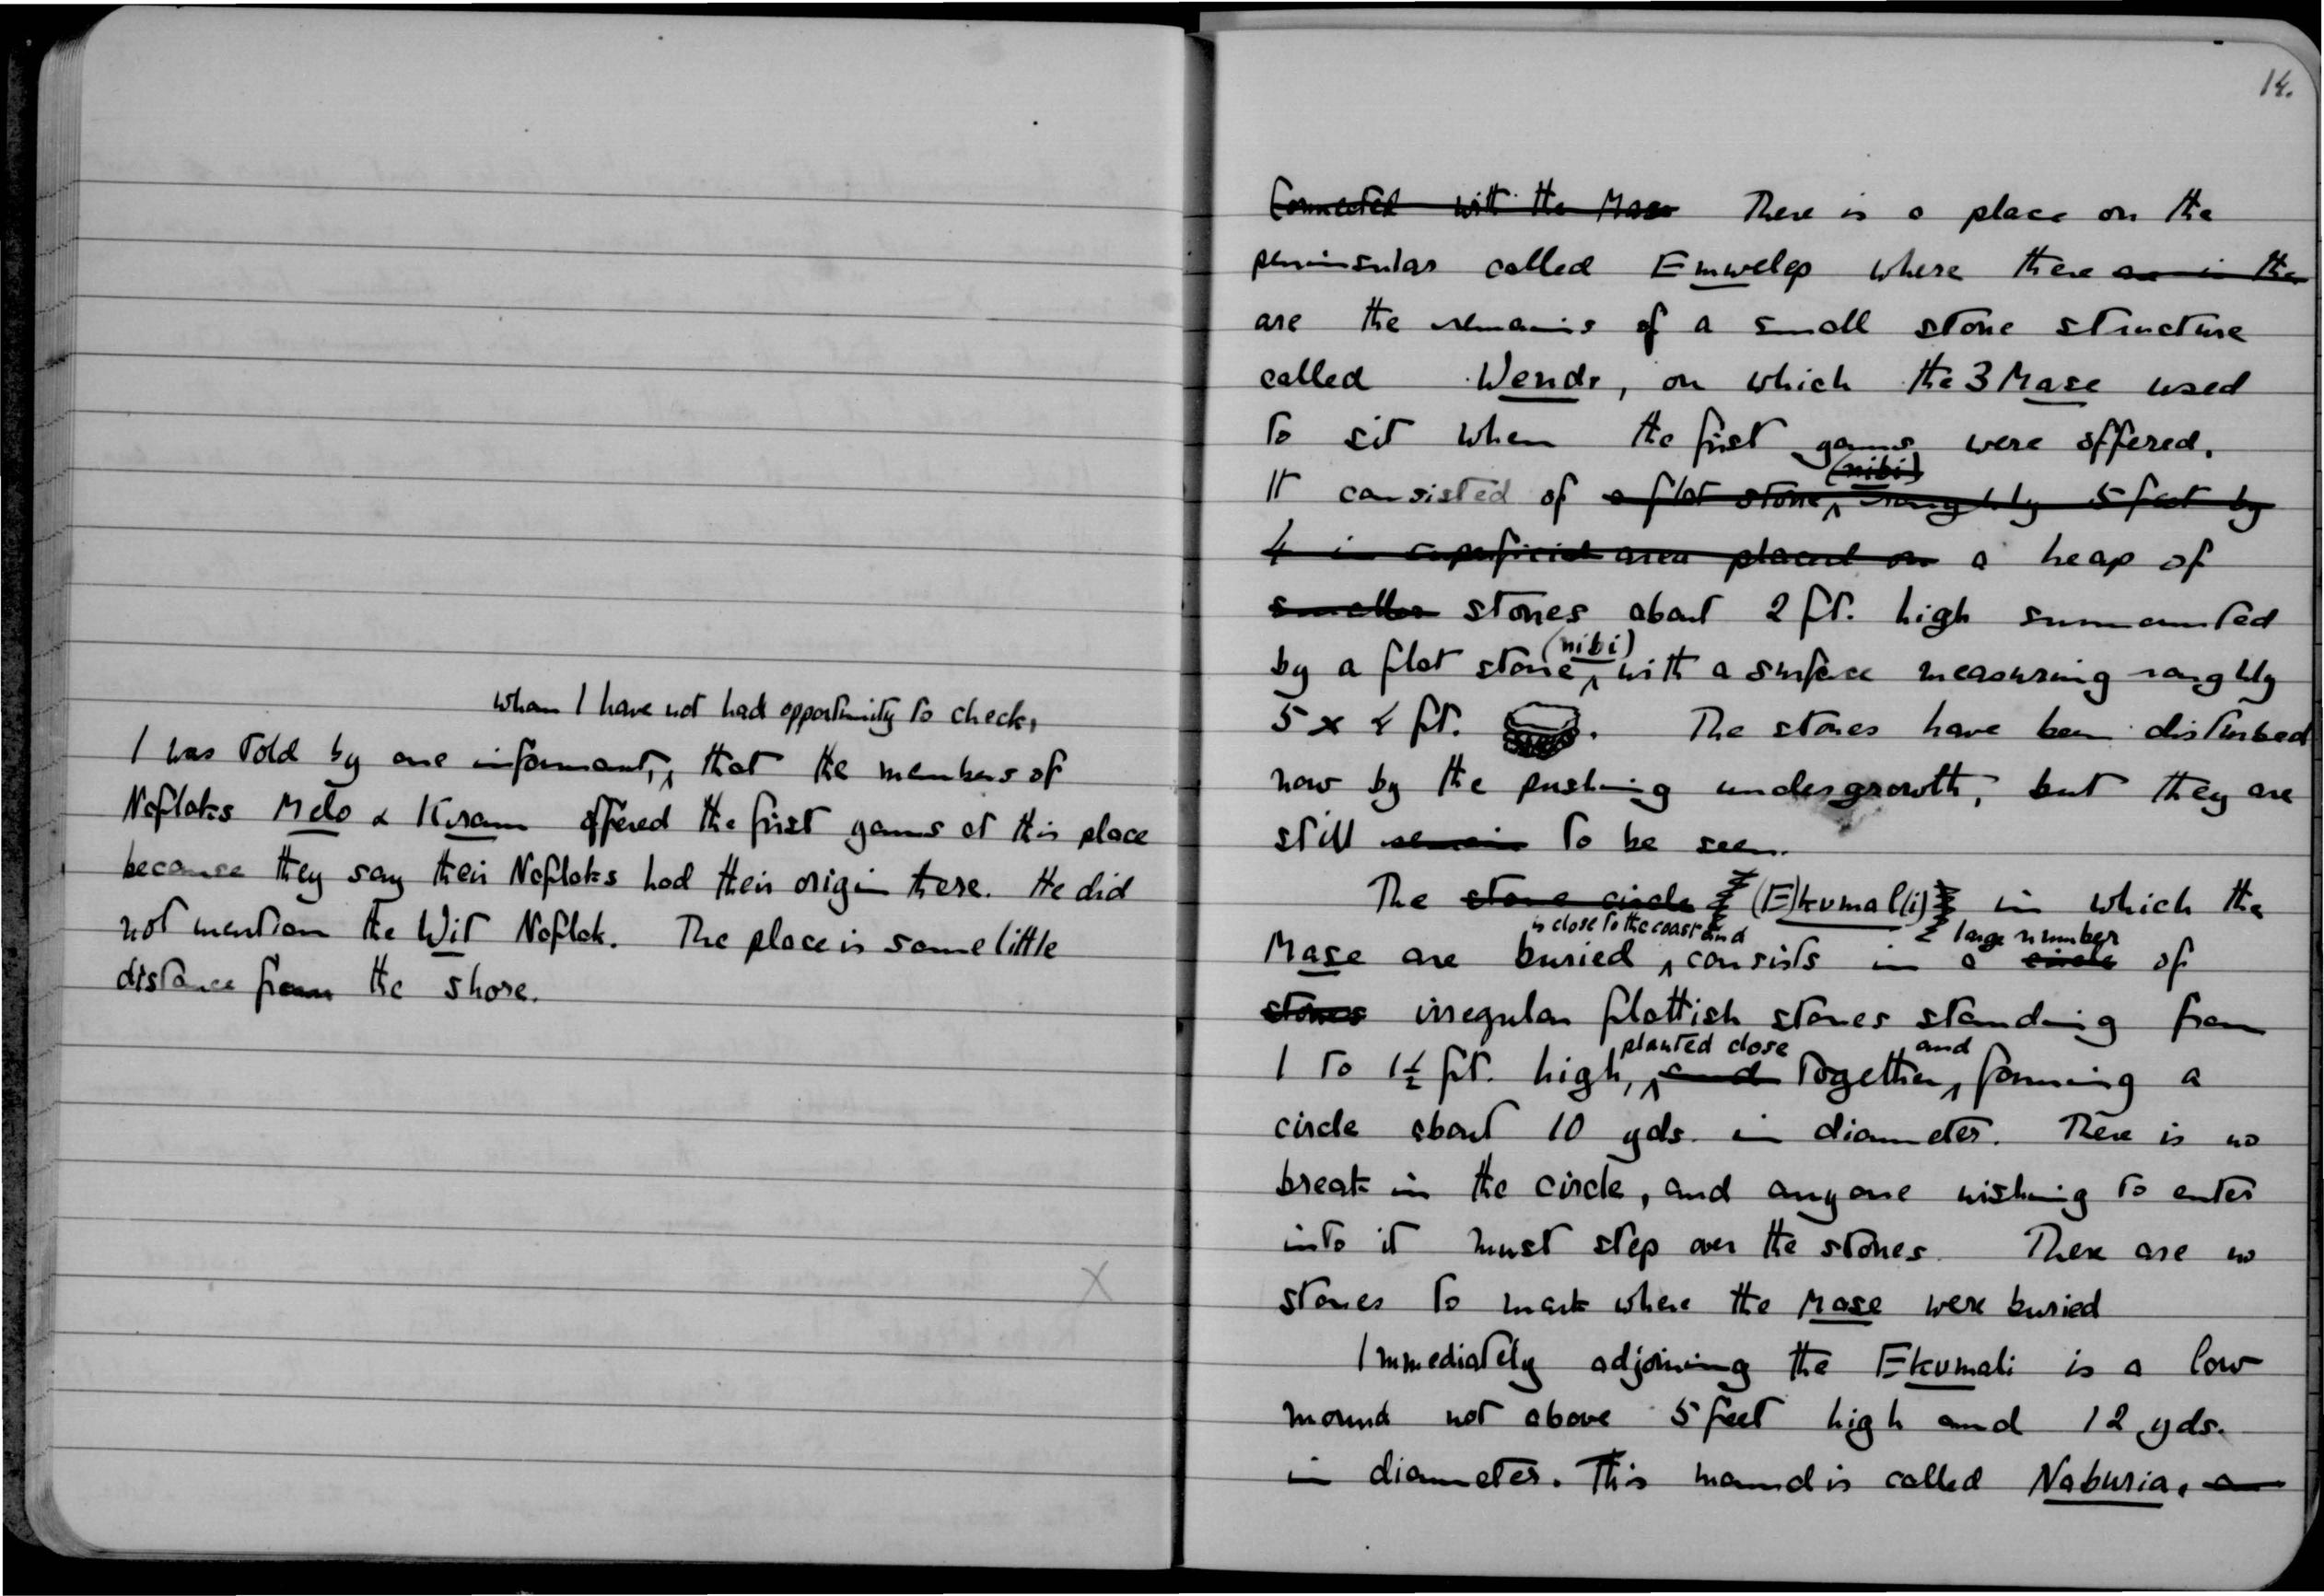 whom I have not had opportunity to check,
I was told by one informant, ‸ that the members of
Nofloks Melo & Kiram offered the first yams at this place
because they say their Nofloks had their origin there. He did
not mention the Wit Noflok. The place is some little
distance from the shore.
X
14.
Connected with the Mase There is a place on the
peninsular called Emwelep where there are in the
are the remains of a small stone structure
called Wendr, on which the 3 Mase used
to sit when the first yams were offered.
(nibi)
It consisted of a flat stone, ‸ roughly 5 feet by
4 in superficial area placed on a heap of
smaller stones about 2 ft. high surmounted
(nibi)
by a flat stone, ‸ with a surface measuring roughly
5 x 4 ft. The stones have been disturbed
now by the pushing undergrowth, but they are
still remain to be seen.
The stone circle (E)kumal(i) in which the
is close to the coast and large number
Mase are buried ‸ consists in a circle of
stones irregular flattish stones standing from
planted close and
1 to 1½ ft. high, ‸ and together, ‸ forming a
circle about 10 yds. in diameter. There is no
break in the circle, and anyone wishing to enter
into it must step over the stones. There are no
stones to mark where the Mase were buried
Immediately adjoining the Ekumali is a low
mound not above 5 feet high and 12 yds.
in diameter. This mound is called Naburia, a